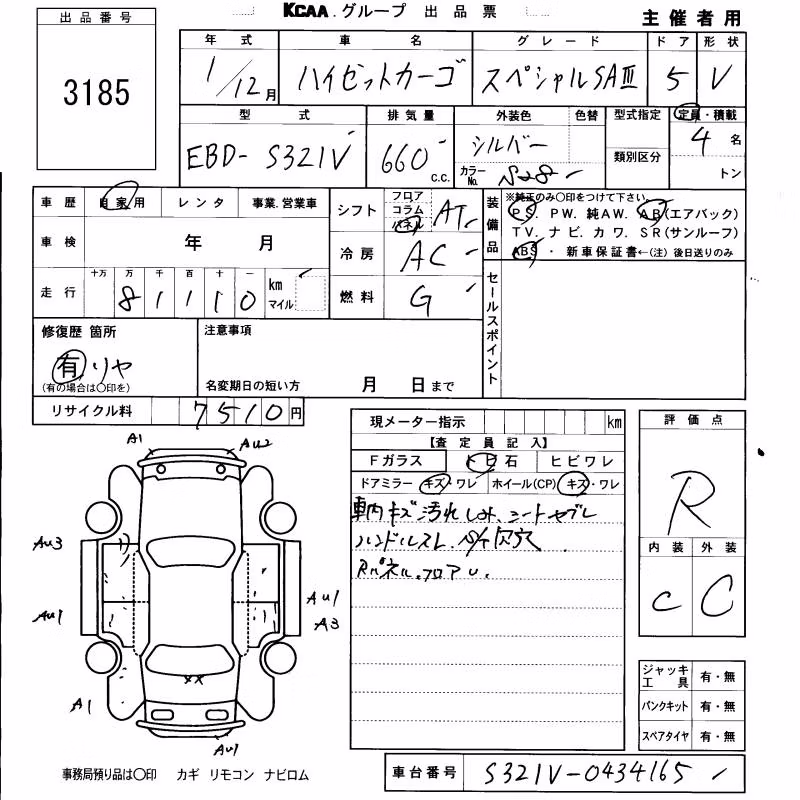 KCAA.グループ 出品票
主催者用
出品番号
3185
年式 車名 グレード ドア 形状
1/12月 ハイゼットカーゴ スペシャルSAⅢ 5 V
型式 排気量 外装色 色替 型式指定 定員・積載
類別区分
EBD-S321V 660 c.c. シルバー カラーNo. S28 4 名
トン
車歴 自家用 レンタ 事業.営業車
車検 年 月
走行 十万 万 千 百 十 一
81110 km マイル
シフト フロア コラム パネル AT
冷房 AC
燃料 G
装備品 ※純正のみ○印をつけて下さい。
PS. PW. 純AW. AB(エアバック)
TV. ナビ. カワ. SR(サンルーフ)
ABS ・ 新車保証書←(注) 後日送りのみ
セールスポイント
修復歴 箇所
有 リヤ
(有の場合は○印を)
注意事項
名変期日の短い方 月 日まで
リサイクル料 7510円
現メーター指示 km
【査定員記入】
Fガラス トビ石 ヒビワレ
ドアミラー キズ・ワレ ホイール(CP) キズ・ワレ
車内キズ汚れしみ、シートヤブレ
ハンドルスレ、
Rパネル、フロアU.
評価点
R
内装 外装
C C
A1
AU2
AU3
AU1
AU1
A3
A1
XX
AU1
ジャッキ工具 有・無
パンクキット 有・無
スペアタイヤ 有・無
事務局預り品は○印 カギ リモコン ナビロム
車台番号 S321V-0434165